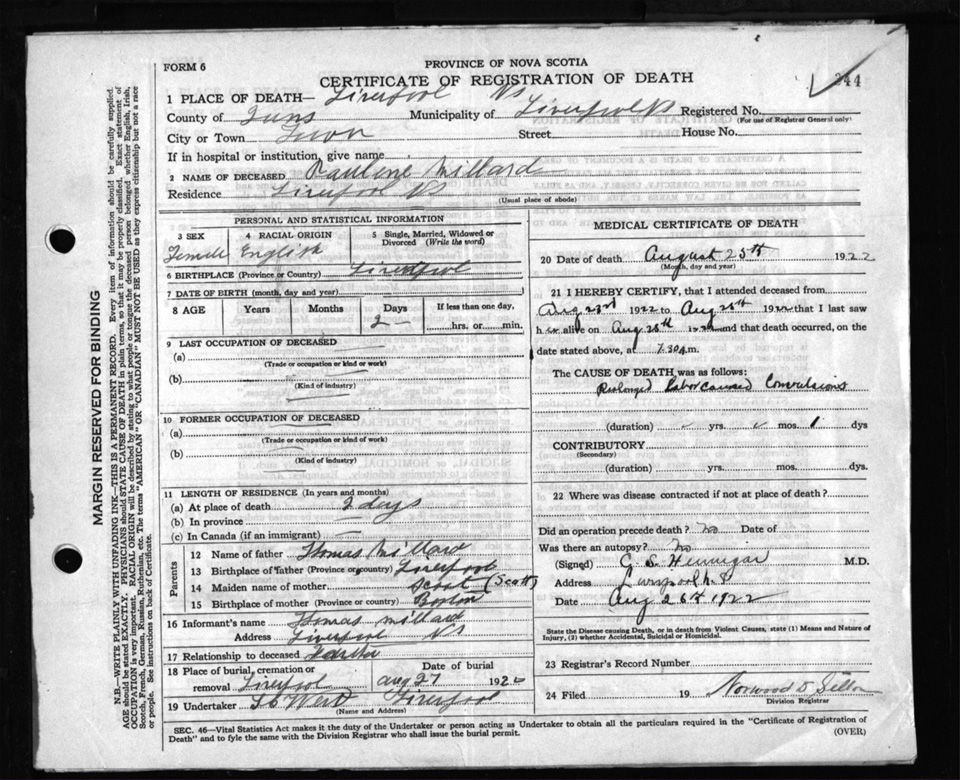 FORM 6
PROVINCE OF NOVA SCOTIA
CERTIFICATE OF REGISTRATION OF DEATH
344
1 PLACE OF DEATH— Liverpool NS
County of Quns Municipality of Liverpool NS Registered No.
(For use of Registrar General only)
City or Town Town Street House No.
If in hospital or institution, give name
2 NAME OF DECEASED Pauline Millard
Residence Liverpool NS
(Usual place of abode)
PERSONAL AND STATISTICAL INFORMATION
3 SEX 4 RACIAL ORIGIN 5 Single, Married, Widowed or Divorced (Write the word)
Female English
6 BIRTHPLACE (Province or Country) Liverpool
7 DATE OF BIRTH (month, day and year)
8 AGE Years Months Days If less than one day,
2 hrs. or min.
9 LAST OCCUPATION OF DECEASED
(a)
(Trade or occupation or kind of work)
(b)
(Kind of industry)
10 FORMER OCCUPATION OF DECEASED
(a)
(Trade or occupation or kind of work)
(b)
(Kind of industry)
11 LENGTH OF RESIDENCE (In years and months)
(a) At place of death 2 days
(b) In province
(c) In Canada (if an immigrant)
Parents
12 Name of father Thomas Millard
13 Birthplace of father (Province or country) Liverpool
14 Maiden name of mother Scoat (Scott)
15 Birthplace of mother (Province or country) Boston
16 Informant's name Thomas Millard
Address Liverpool NS
17 Relationship to deceased
18 Place of burial, cremation or Date of burial
removal Liverpool Aug 27 192
19 Undertaker Liverpool
(Name and Address)
MEDICAL CERTIFICATE OF DEATH
20 Date of death August 25th 1922
(Month, day and year)
21 I HEREBY CERTIFY, that I attended deceased from
Aug 23rd 1922 to Aug 25th 1922 that I last saw
h er alive on Aug 25th 1922 and that death occurred, on
date stated above, at 7.30 A m.
The CAUSE OF DEATH was as follows:
Prolonged labor caused Convulsions
(duration) yrs. mos. 1 dys
CONTRIBUTORY
(Secondary)
(duration) yrs. mos. dys.
22 Where was disease contracted if not at place of death?
Did an operation precede death? No Date of
Was there an autopsy? No
(Signed) G. S. Hennigar M.D.
Address Liverpool N.S
Date Aug 26th 1922
State the Disease causing Death, or in death from Violent Causes, state (1) Means and Nature of Injury, (2) whether Accidental, Suicidal or Homicidal.
23 Registrar's Record Number
24 Filed 19
Division Registrar
SEC. 46—Vital Statistics Act makes it the duty of the Undertaker or person acting as Undertaker to obtain all the particulars required in the "Certificate of Registration of
Death" and to fyle the same with the Division Registrar who shall issue the burial permit.
(OVER)
MARGIN RESERVED FOR BINDING
N.B.—WRITE PLAINLY WITH UNFADING INK—THIS IS A PERMANENT RECORD. Every item of information should be carefully supplied.
AGE should be stated EXACTLY. PHYSICIANS should STATE CAUSE OF DEATH in plain terms, so that it may be properly classified. Exact statement of
OCCUPATION is very important. RACIAL ORIGIN will be described by stating to what people or tongue the deceased person belonged whether English, Irish,
Scotch, French, German, Russian, Ruthenian, etc. The terms "AMERICAN" OR "CANADIAN" MUST NOT BE USED as they express citizenship but not a race
or people. See instructions on back of Certificate.